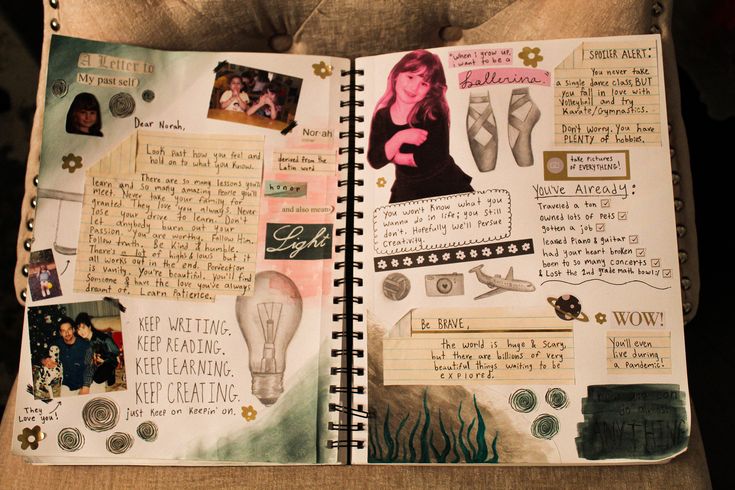 A Letter to
My past self
Dear Norah,
Look past how you feel and
hold on to what you know.
There are so many lessons you'll
learn and so many amazing people you'll
meet. Never take your family for
granted. They love you always. Never
lose your drive to learn. Don't
let anybody burn out your
Passion. You are worthy. Follow Him.
Follow truth. Be kind & humble.
There's a lot of highs & lows but it
all works out in the end. Perfection
is vanity. You're beautiful. you'll find
Someone & have the love you've always
dreamt of. Learn Patience.
Norah
derived from the
Latin word
honor
and also means
Light
KEEP WRITING.
KEEP READING.
KEEP LEARNING.
KEEP CREATING.
just keep on keepin' on.
They Love you!
"when I grow up,
i want to be a
ballerina"
SPOILER ALERT:
You never take
a single dance class, BUT
you fall in love with
Volleyball and try
Karate/Gymnastics.
Don't worry. You have
PLENTY of hobbies.
take pictures
OF EVERYTHING!
You've Already:
Traveled a ton
owned lots of pets
gotten a job
learned Piano & guitar
had your heart broken
been to so many concerts
& Lost the 2nd grade math bowl:)
You won't know what you
wanna do in life; you still
don't. Hopefully we'll pursue
Creativity.
Be BRAVE,
the world is huge & scary,
but there are billions of very
beautiful things waiting to be
explored.
WOW!
You'll even
live during
a pandemic.
ANYTHING